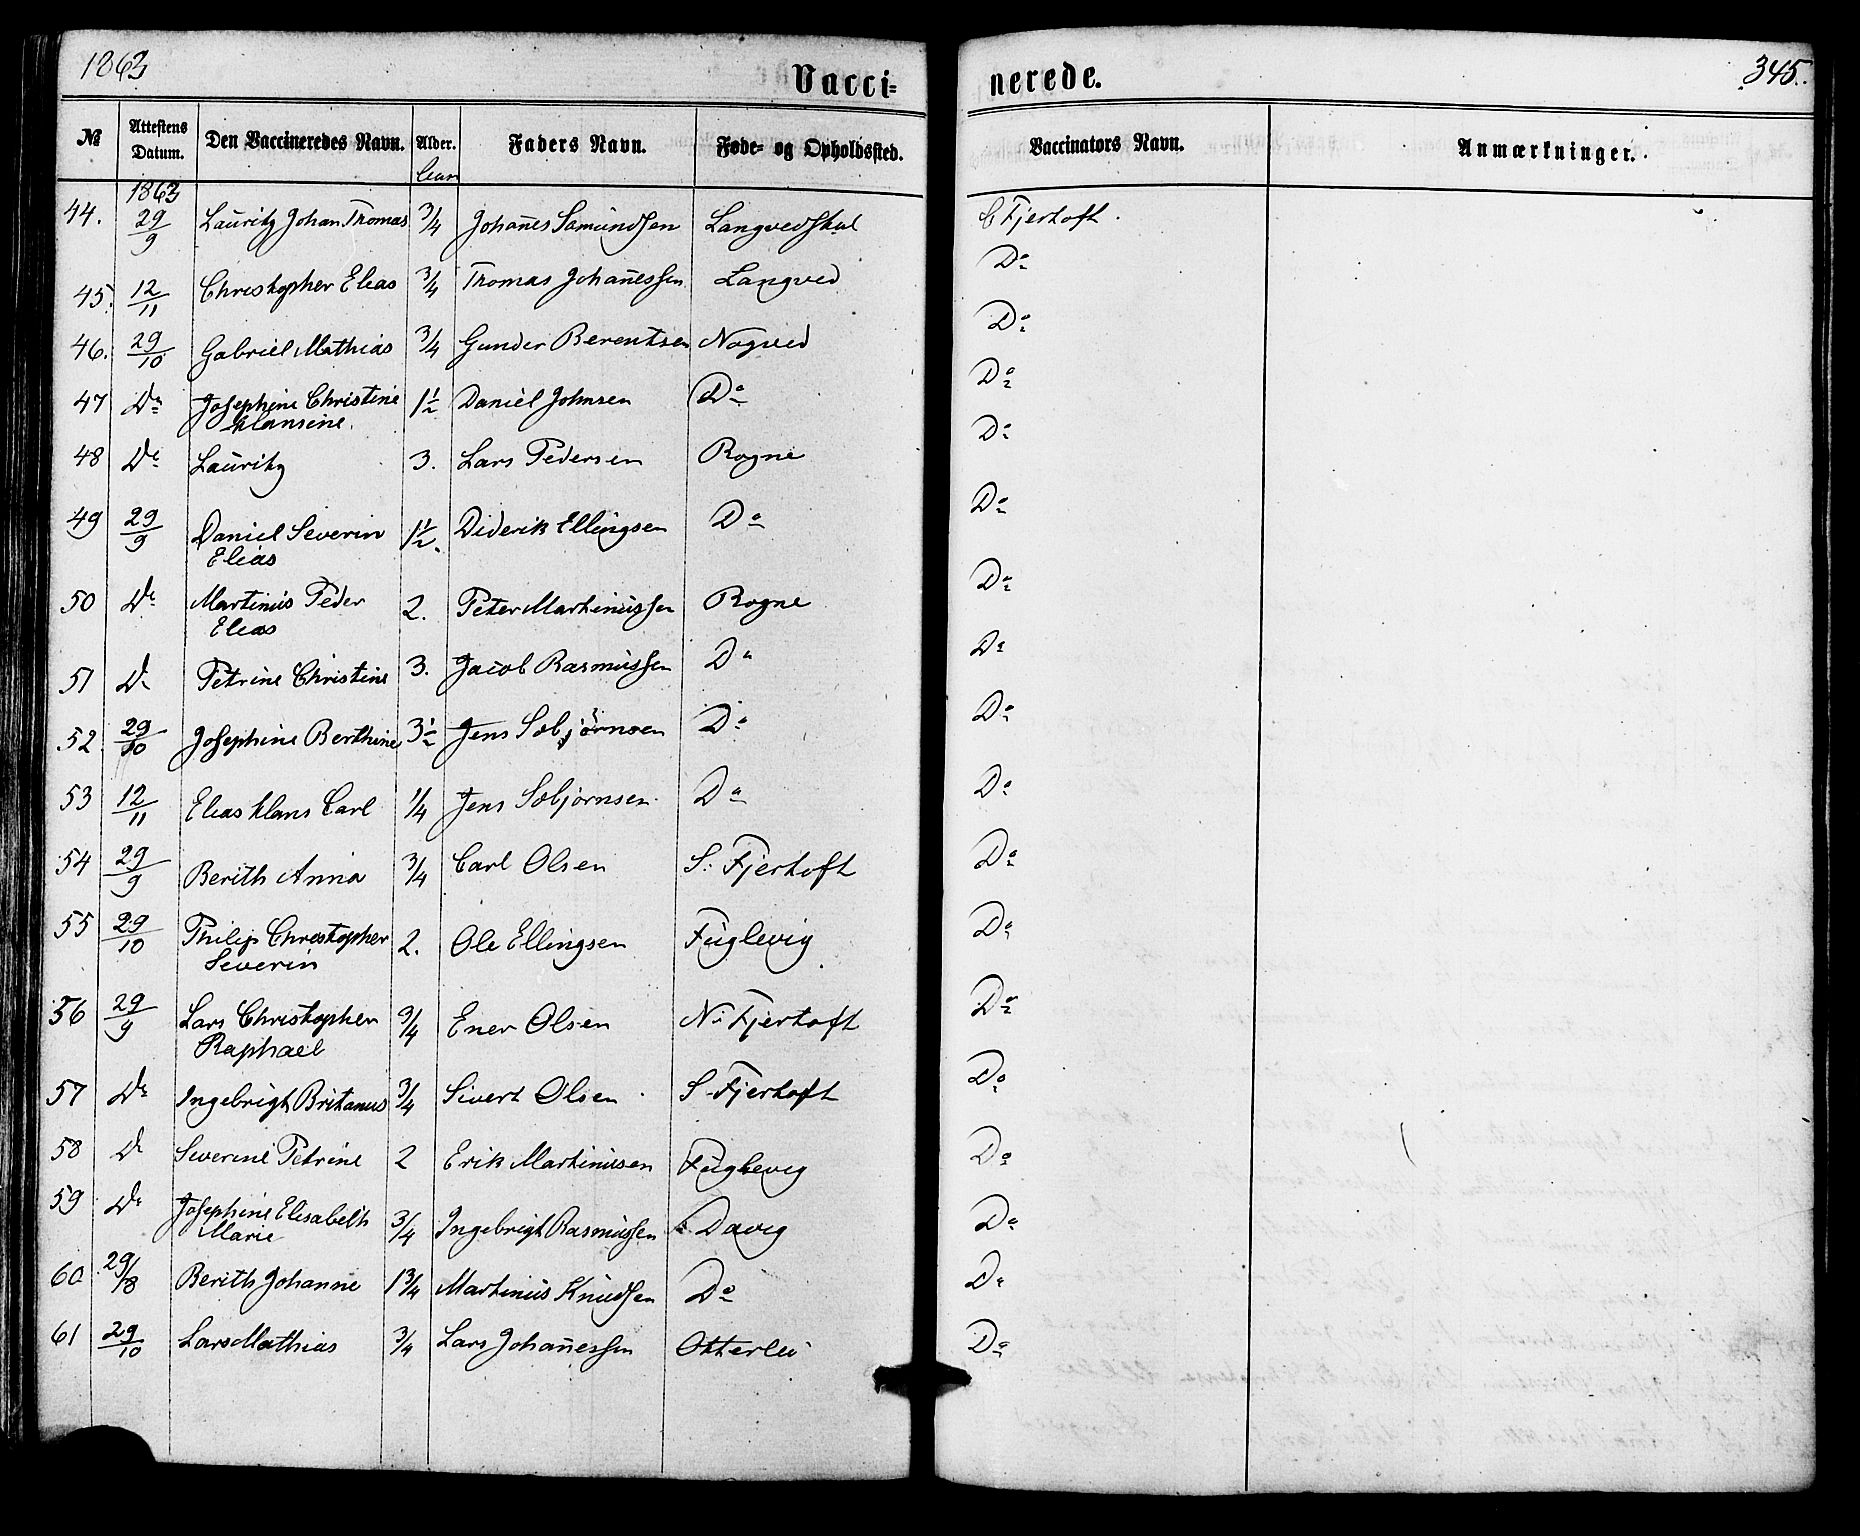 1863
Vacci-
nerede.
345.
№ Attestens Datum. Den Vaccineredes Navn. Alder. Faders Navn. Føde- og Opholdssted. Vaccinators Navn. Anmærkninger.
1863
44. 29/9 Lauritz Johan Thomas 3/4 Johan̄es Samundsen Langvedskal Fjertoft.
45. 12/11 Christopher Elias 3/4 Thomas Johan̄essen Langved Do
46. 29/10 Gabriel Mathias 3/4 Gunder Berentsen Nogved Do
47 Do Josephine Christine 1½ Daniel Johnsen Do Do
Klansine.
48 Do Lauritz 3. Lars Pedersen Rogne Do
49 29/9 Daniel Severin 1½. Diderik Ellingsen Do Do
Elias
50 Do Martinus Peder 2. Peter Martinussen Rogne Do
Elias
51 Do Petrine Christine 3. Jacob Rasmussen Do Do
52. 29/10 Josephine Berthine 3½ Jens Sæbjørnsen Do Do
53 12/11 Elias Klans Carl 1/4 Jens Sæbjørnsen Do Do
54 29/9 Berith Anna 3/4 Carl Olsen S. Fjertoft Do
55 29/10 Philip Christopher 2. Ole Ellingsen Fuglevig Do
Severin
56 29/9 Lars Christopher 3/4 Ener Olsen N. Fjertoft Do
Raphael
57 Do Ingebrigt Britanus 3/4 Sivert Olsen S. Fjertoft Do
58 Do Severine Petrine 2 Erik Martinusen Fuglevig Do
59 Do Josephine Elisabeth 3/4 Ingebrigt Rasmussen Davig Do
Marie
60 29/8 Berith Johanne 1¾ Martinus Knudsen Do Do
61 29/10 Lars Mathias 3/4 Lars Johan̄essen Otterlei Do